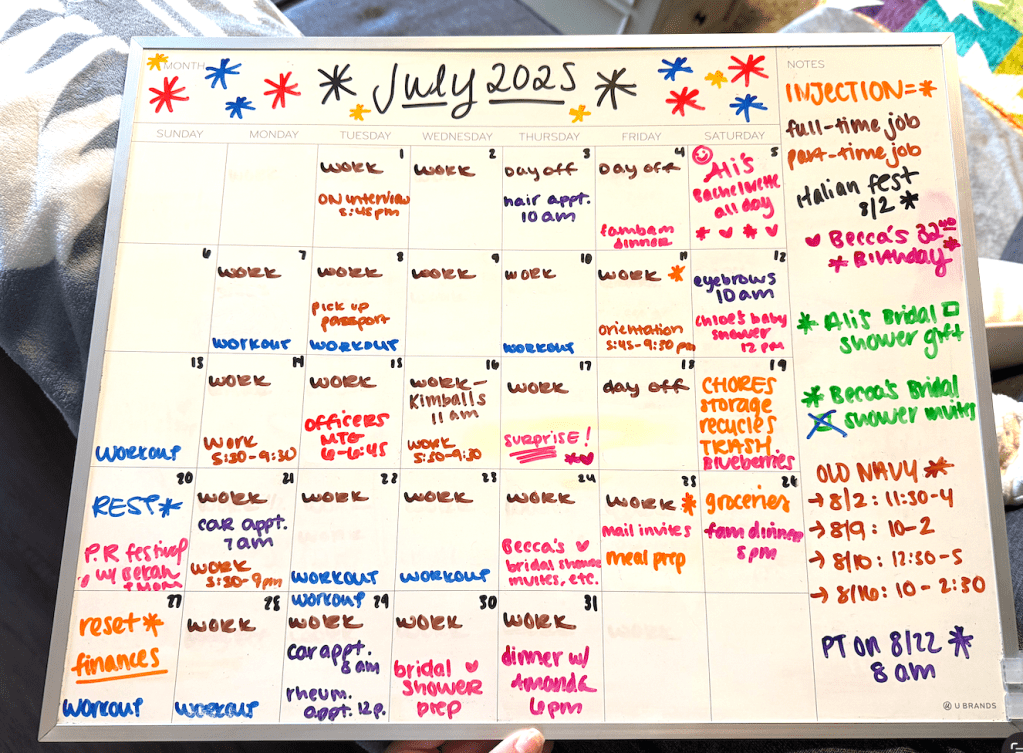 MONTH
July 2025
SUNDAY MONDAY TUESDAY WEDNESDAY THURSDAY FRIDAY SATURDAY
1
WORK
ON interview
5:45pm
2
WORK
3
Day off
hair appt.
10 am
4
Day off
fambam
dinner
5
Ali's
Bachelorette
all day
6
7
WORK
WORKOUT
8
WORK
pick up
passport
WORKOUT
9
WORK
10
WORK
WORKOUT
11
WORK
orientation
5:45-9:30 pm
12
eyebrows
10 am
Chloe's baby
shower
12 pm
13
WORKOUT
14
WORK
WORK
5:30-9:30
15
WORK
OFFICERS
MTG
6-6:45
16
WORK-
Kimballs
11 am
WORK
5:30-9:30
17
WORK
SURPRISE!
18
day off
19
CHORES
storage
recycles
TRASH
Blueberries
20
REST
P.R festival
w/ Bekah
+ Mom
21
WORK
car appt.
7 am
WORK
5:30-9pm
22
WORK
WORKOUT
23
WORK
WORKOUT
24
WORK
Becca's
bridal shower
invites, etc.
25
WORK
mail invites
meal prep
26
groceries
fam dinner
5 pm
27
reset
finances
WORKOUT
28
WORK
WORKOUT
29
WORKOUT
WORK
car appt.
8 am
rheum.
appt. 12p.
30
WORK
bridal
shower
prep
31
WORK
dinner w/
Amanda
6pm
NOTES
INJECTION=
full-time job
part-time job
Italian fest
8/2
Becca's 32nd
Birthday
Ali's Bridal
shower gift
Becca's Bridal
shower invites
OLD NAVY
→ 8/2: 11:30-4
→ 8/9: 10-2
→ 8/10: 12:30-5
→ 8/16: 10-2:30
PT ON 8/22
8 am
U BRANDS